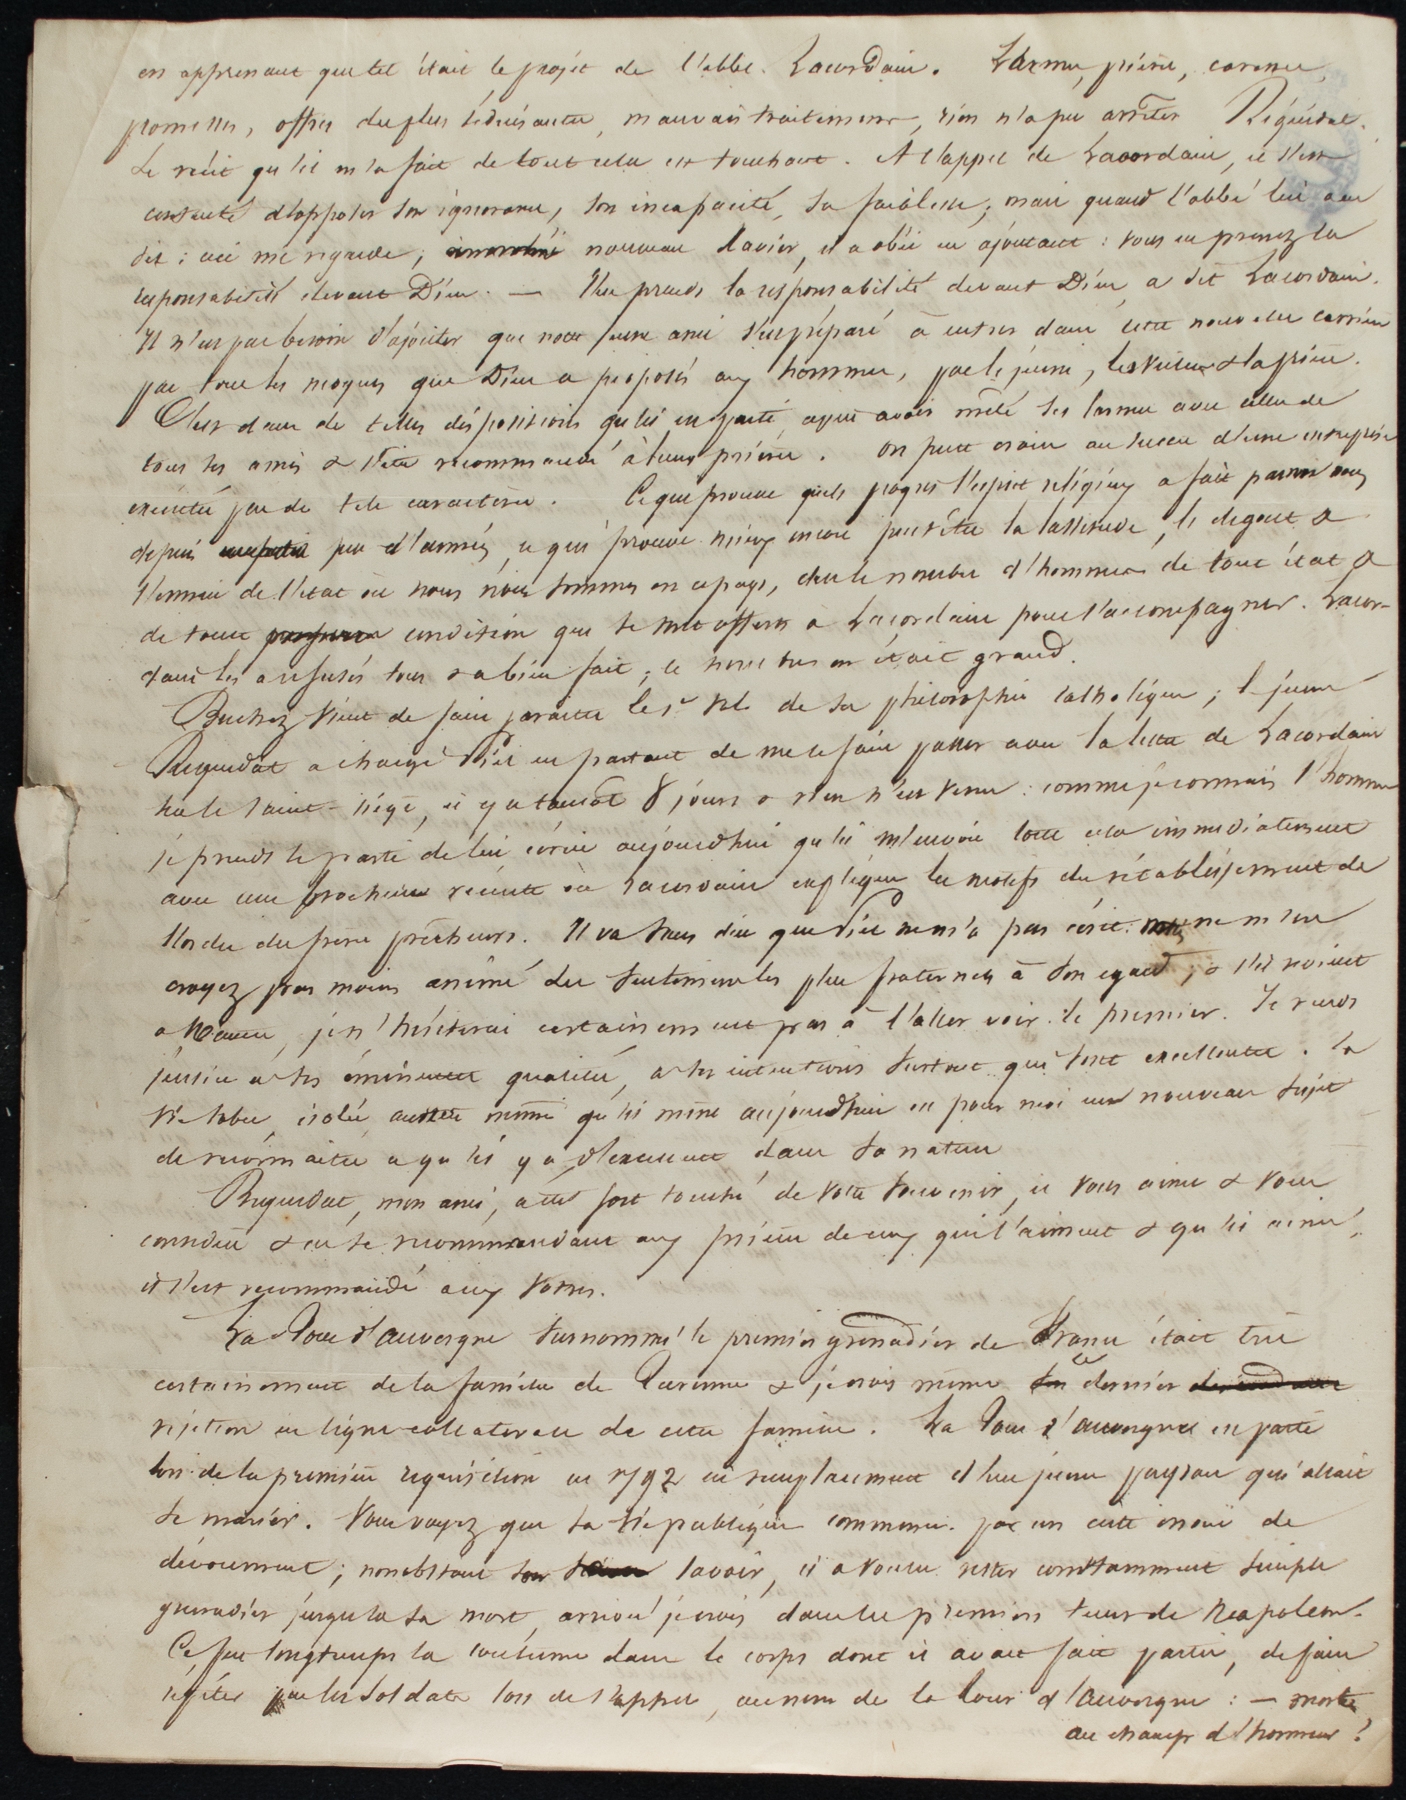 en apprenant que tel était le projet de l'abbé Lacordaire. Larmes, prières, caresses,
promesses, offres des plus séduisantes, mauvais traitements, rien n'a pu arrêter Réquédat.
Le récit qu'il m'a fait de tout cela est touchant. A l'appel de Lacordaire, il s'est
contenté d'opposer son ignorance, son incapacité, sa faiblesse; mais quand l'abbé lui a eu
dit: ceci me regarde; nouveau Xavier, il a obéi en ajoutant: vous en prenez la
responsabilité devant Dieu. — J'en prends la responsabilité devant Dieu, a dit Lacordaire.
Il n'est pas besoin d'ajouter que notre jeune ami s'est préparé à entrer dans cette nouvelle carrière
par tous les moyens que Dieu a proposés aux hommes, par le jeûne, les veilles & la prière.
C'est dans de telles dispositions qu'il est parti, après avoir mêlé ses larmes avec celles de
tous ses amis & s'être recommandé à leurs prières. On peut croire au succès d'une entreprise
exécutée par de tels caractères. Ce qui prouve quels progrès l'esprit religieux a fait parmi nous
depuis peu d'années, ce qui prouve mieux encore peut-être la lassitude, le dégout &
l'ennui de l'état où nous nous sommes en ce pays, c'est le nombre d'hommes de tout état &
de toute condition qui se sont offerts à Lacordaire pour l'accompagner. Lacor-
daire les a refusés tous & a bien fait; le nombre en était grand.
Buchez vient de faire paraître le 1er vol. de sa philosophie catholique; le jeune
Requédat a chargé Piel en partant de me le faire passer avec la lettre de Lacordaire
sur le Saint-Siège, il y a tantôt 8 jours & rien n'est venu: comme je connais l'homme
je prends le parti de lui écrire aujourd'hui qu'il m'envoie tout cela immédiatement
avec une brochure récente où Lacordaire explique les motifs du rétablissement de
l'ordre des frères prêcheurs. Il va sans dire que Piel ne m'a pas écrit. ne m'en
croyez pas moins animé des sentimens les plus fraternels à son égard; & s'il revient
à Nantes, je n'hésiterai certainement pas à l'aller voir le premier. Je rends
justice à ses éminentes qualités, à ses intentions surtout qui sont excellentes. La
vie sobre, isolée, austère même qu'il mène aujourd'hui est pour moi un nouveau sujet
de reconnaître ce qu'il y a d'excellent dans sa nature
Requédat, mon ami, a été fort touché de votre souvenir, il vous aime & vous
considère & en se recommandant aux prières de ceux qui l'aiment & qu'il aime,
il s'est recommandé aux vôtres.
La Tour d'auvergne surnommé le premier grenadier de France était très
certainement de la famille de Turenne & je crois même ce dernier
rejeton en ligne collatérale de cette famille. La Tour d'auvergne est parti
lors de la première réquisition en 1792 en remplacement d'un jeune paysan qui allait
se marier. Vous voyez que sa vie publique commence par un acte inouï de
dévouement; nonobstant savoir, il a voulu rester constamment simple
grenadier jusqu'à sa mort, arrivée je crois dans les premiers tems de Napoléon.
Ce fut longtemps la coutume dans le corps dont il avait fait partie, de faire
répéter par les soldats lors de l'appel, au nom de la Tour d'auvergne: — mort
au champ d'honneur!